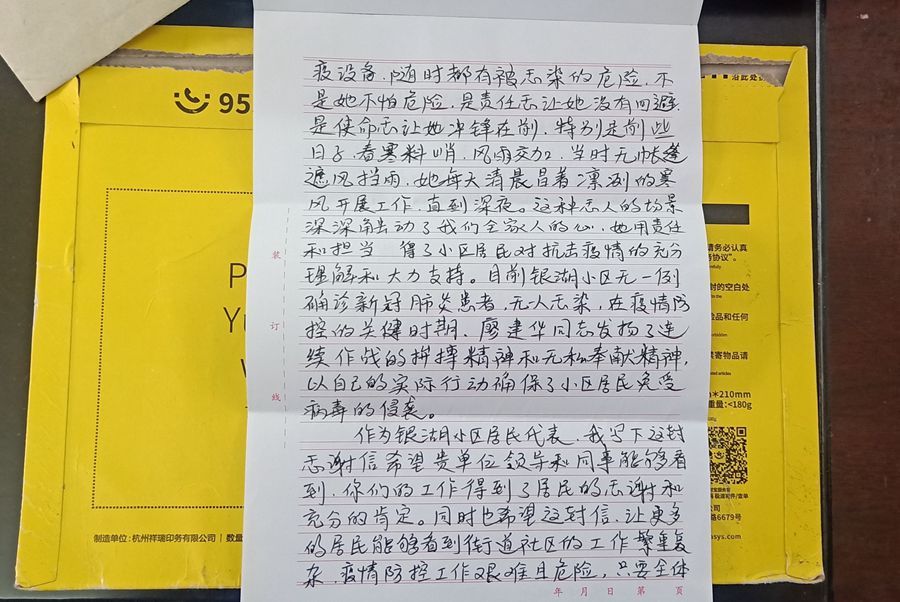 疫设备，随时都有被志染的危险，不
是她不怕危险，是责任志让她没有回避，
是使命志让她冲锋在前，特别是前些
日子，春寒料峭，风雨交加，当时无帐篷
遮风挡雨，她每天清晨冒着凛冽的寒
风开展工作，直到深夜。这种志人的场景
深深触动了我们全家人的心，她用责任
和担当 得了小区居民对抗击疫情的充分
理解和大力支持。目前银湖小区无一例
确诊新冠肺炎患者，无一人志染，在疫情防
控的关健时期，廖建华同志发扬了连
续作战的拼搏精神和无私奉献精神，
以自己的实际行动确保了小区居民免受
病毒的侵袭。
作为银湖小区居民代表，我写下这封
志谢信希望贵单位领导和同事能够看
到，你们的工作得到了居民的志谢和
充分的肯定。同时也希望这封信，让更多
的居民能够看到街道社区的工作繁重复
杂，疫情防控工作艰难且危险，只要全体
年 月 日 第 页
装
订
线
95
P
Yu
制造单位：杭州祥瑞印务有限公司 | 数量
沿此处
请务必认真
务协议”。
封的空白处
险品和任何
寄物品请
*210mm
重量：<180g
公司
路6679号
asys.com